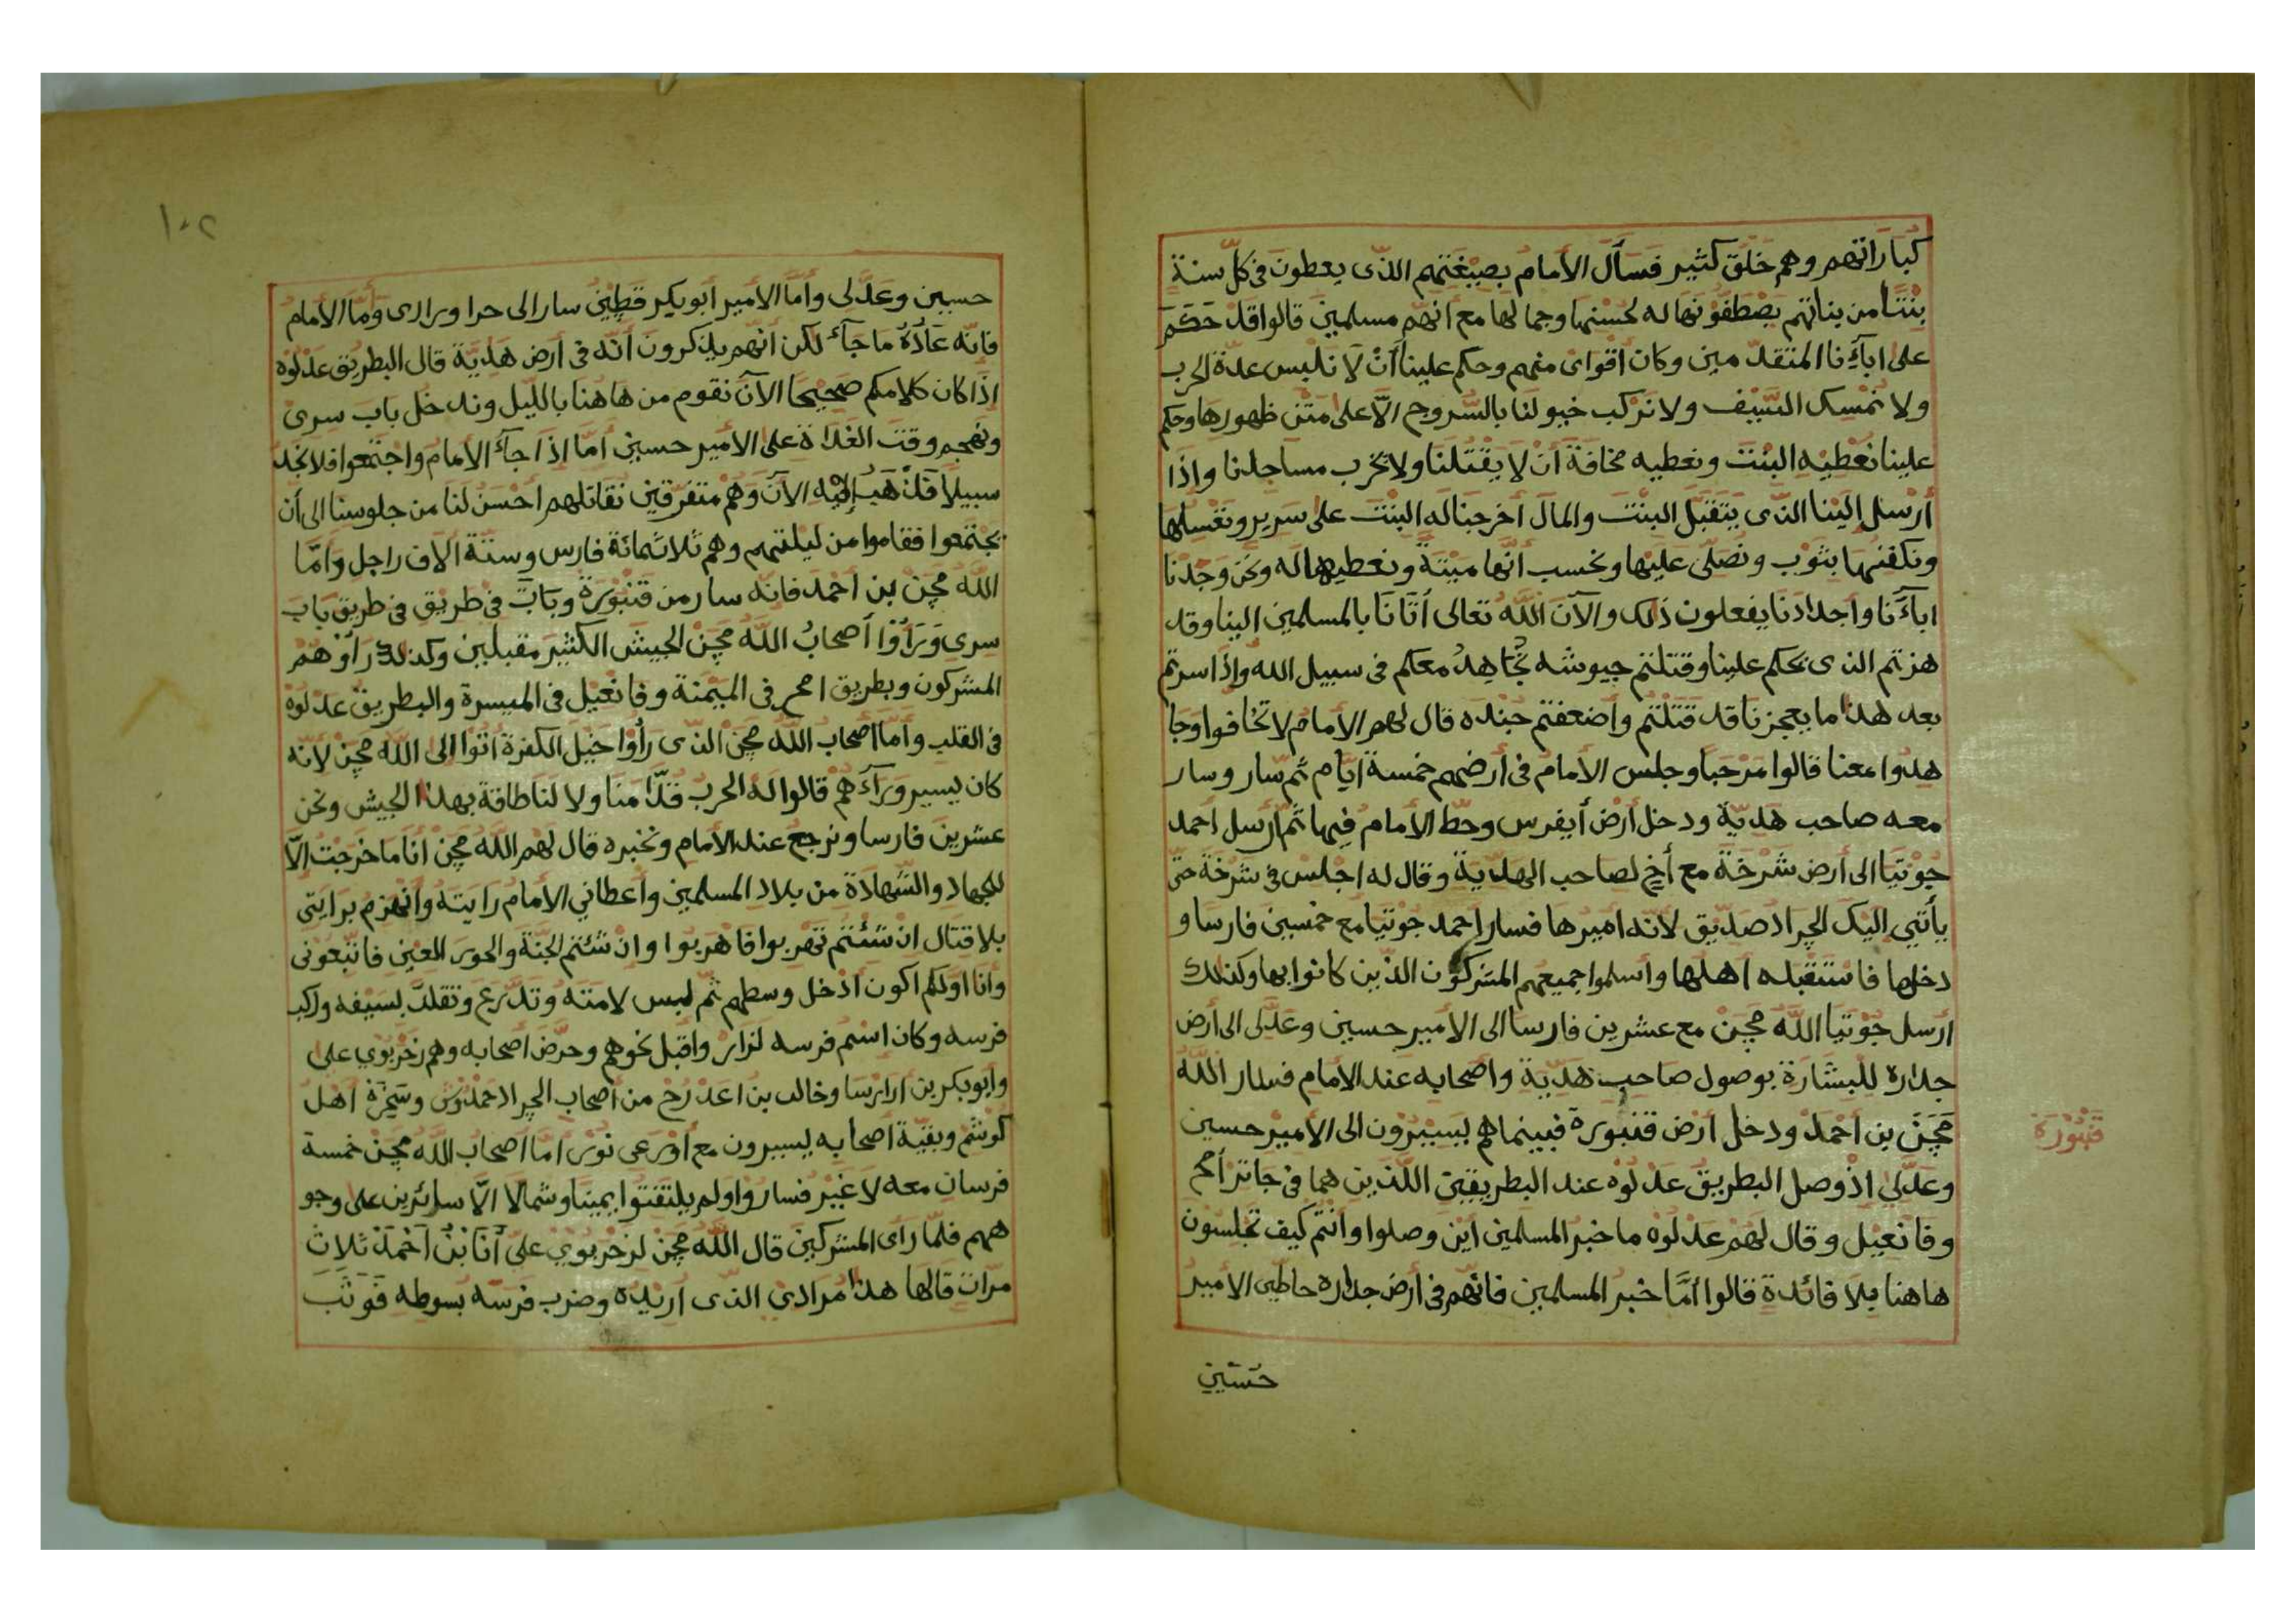 كباراتهم وهم خلق كثير فسأل الأمام بصيغتهم الذى يعطون فى كل سنة
بنتا من بناتهم يصطفونها له لحسنها وجمالها مع أنهم مسلمين قالوا قد حكم
على ابآئنا المتقدمين وكان أقوائ منهم وحكم علينا أن لا نلبس عدة الحرب
ولا نمسك السيف ولا نركب خيولنا بالسروج الا على متن ظهورها وحكم
علينا نعطيه البنت ونعطيه مخافة أن لا يقتلنا ولا يخرب مساجدنا واذا
أرسل الينا الذى يتقبل البنت والمال أخرجنا له البنت على سرير ونغسلها
ونكفنها بثوب ونصلى عليها ونحسب أنها ميتة ونعطيها له ونحن وجدنا
ابآئنا وأجدادنا يفعلون ذلك والآن الله تعالى أتانا بالمسلمين الينا وقد
هزتم الذى يحكم علينا وقتلتم جيوشه نجاهد معكم فى سبيل الله واذا سرتم
بعد هذا ما يعجزنا قد قتلتم وأضعفتم جنده قال لهم الأمام لا تخافوا وجا
هدوا معنا قالوا مرحبا وجلس الأمام فى أرضهم خمسة ايام ثم سار وسار
معه صاحب هدية ودخل أرض أيفرس وحط الأمام فيها ثم أرسل احمد
جوتيا الى أرض شرخة مع أخ لصاحب الهدية وقال له اجلس فى شرخة حتى
يأتي اليك الجراد صديق لأنه اميرها فسار احمد جوتيا مع خمسين فارسا و
دخلها فاستقبله اهلها وأسلموا جميعهم المشركون الذين كانوا بها وكذلك
ارسل جوتيا الله مچن مع عشرين فارسا الى الأمير حسين وعدلى الى أرض
جداره للبشارة بوصول صاحب هدية وأصحابه عند الأمام فسار الله
مچن بن احمد ودخل أرض قنبورة فبينماهم يسيرون الى الأمير حسين
وعدلي اذ وصل البطريق عدلوه عند البطريقين اللذين هما فى جاتر أمح
وفانعيل وقال لهم عدلوه ما خبر المسلمين اين وصلوا وانتم كيف تجلسون
هاهنا بلا فائدة قالوا أما خبر المسلمين فانهم فى أرض جداره حاطين الأمير
حسين
قنبورة
١٠٢
حسين وعدلى وأما الأمير أبوبكر قطين سار الى حرا وبرارى وأما الأمام
فانه عادة ما جآء لكن انهم يذكرون أنه فى أرض هدية قال البطريق عدلوه
اذا كان كلامكم صحيحا الآن نقوم من هاهنا بالليل وندخل باب سرى
ونهجم وقت الغداة على الأمير حسين أما اذا جآء الأمام واجتمعوا فلا نجد
سبيلا فنذهب اليه الآن وهم متفرقين نقاتلهم احسن لنا من جلوسنا الى أن
يجتمعوا فقاموا من ليلتهم وهم ثلاثمائة فارس وستة الاف راجل وأما
الله مچن بن احمد فانه سار من قنبورة وبات فى طريق فى طريق باب
سرى ورأوا أصحاب الله مچن الجيش الكثير مقبلين وكذلك رأوهم
المشركون وبطريق امح فى الميمنة وفانعيل فى الميسرة والبطريق عدلوه
فى القلب وأما أصحاب الله مچن الذى رأوا خيل الكفرة أتوا الى الله مچن لأنه
كان يسير ورآءهم قالوا له الحرب قدامنا ولا لنا طاقة بهذا الجيش ونحن
عشرين فارسا ونرجع عند الأمام ونخبره قال لهم الله مچن أنا ما خرجت الا
للجهاد والشهادة من بلاد المسلمين وأعطاني الأمام رايته وانهزم برايتى
بلا قتال ان شئتم تهربوا فاهربوا وان شئتم الجنة والحور العين فاتبعونى
وأنا اولكم اكون ادخل وسطهم ثم لبس لامته وتدرع وتقلد بسيفه وركب
فرسه وكان اسم فرسه لزار واقبل نحوهم وحرض أصحابه وهم زحربوي على
وابوبكر بن أرارسا وخالد بن اعدرح من أصحاب الجراد احمدوش وسحرة اهل
كوشم وبقية اصحابه يسيرون مع أورعى نور اما اصحاب الله مچن خمسة
فرسان معه لا غير فساروا ولم يلتفتوا يمينا وشمالا الا سائرين على وجو
ههم فلما رأى المشركين قال الله مچن لزحربوي على أنا بن احمد ثلاث
مرات قالها هذا مرادي الذى أريده وضرب فرسه بسوطه فوثب